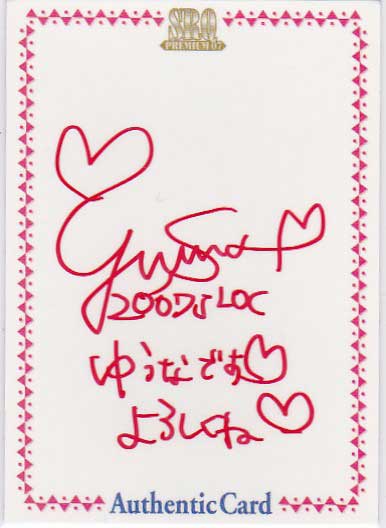 SRQ
PREMIUM 07
Yuuna
2007's LOC
ゆうなです
よろしくね
Authentic Card